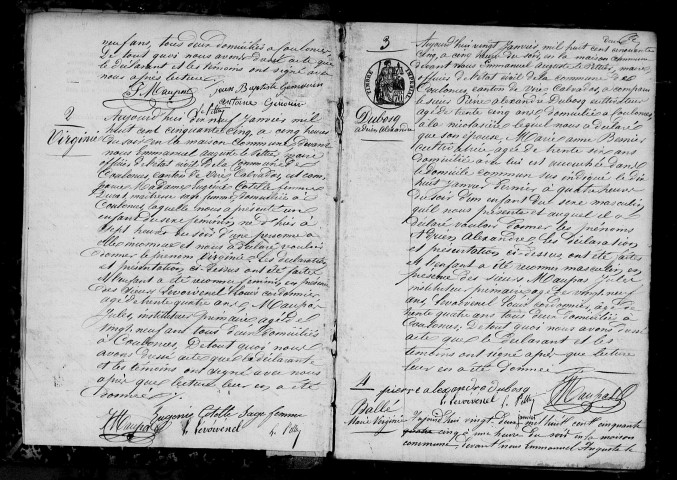 neuf ans, tous deux domiciliés à Coulonces
de tout quoi nous avons dressé acte que
le déclarant et les témoins ont signé avec
nous après lecture
J. Maupas Jean Baptiste
antoine
2
Virginie
Aujourd'hui dix neuf Janvier mil
huit cent cinquante cinq, à cinq heures
du soir en la maison Commune, devant
nous Emmanuel auguste le maire
officier de l'état civil de la Commune de
Coulonces, Canton de Vire Calvados, est com
parue Madame Eugénie Cotelle femme
Lucas, maîtresse sage femme, domiciliée à
Coulonces, laquelle nous a présenté un
enfant du sexe féminin, né d'hier à
sept heures du soir d'une personne à
elle inconnue et nous a déclaré vouloir
donner le prénom Virginie. Les déclaration
et présentation ci-dessus ont été faites
et l'enfant a été reconnu féminin en présence
des sieurs Louis cordonnier,
agé de trente quatre ans, & Maupas
Jules, instituteur primaire agé de
vingt neuf ans tous deux domiciliés
à Coulonces, De tout quoi nous
avons dressé acte que la déclarante
et les témoins ont signé avec nous
après que lecture leur en a été
donnée
Eugénie Cotelle Sage femme
J Maupas
3
Dubosq
adrien Alexandre
Aujourd'hui vingt Janvier mil huit cent cinquante
cinq, à cinq heures du soir, en la maison commune
devant nous Emmanuel Auguste maire
officier de l'état civil de la commune de
Coulonces canton de Vire Calvados, a comparu
le sieur Pierre alexandre Dubosq cultivateur
agé de trente cinq ans, domicilié à Coulonces,
lequel nous a déclaré
que son épouse, Marie anne
cultivatrice agée de trente six ans
domiciliée avec lui est accouchée dans
le domicile commun sus indiqué le dix
huit Janvier dernier à quatre heures
du soir d'un enfant du sexe masculin
qu'il nous présente et auquel il a
déclaré vouloir donner les prénoms
Adrien Alexandre. Les déclaration
et présentation ci-dessus ont été faites
et l'enfant a été reconnu masculin en
présence des sieurs Maupas Jules
instituteur primaire agé de vingt neuf
ans, Louis cordonnier, agé de
trente quatre ans tous deux domiciliés à
Coulonces, De tout quoi nous avons dressé
acte que le Déclarant et les
témoins ont signé après que lecture
leur en a été donnée
pierre alexandre dubosq
J Maupas
4
Ballé
Marie Virginie
Aujourd'hui vingt deux janvier mil huit cent cinquante
cinq à une heure du soir en la maison
commune, devant nous Emmanuel Auguste le